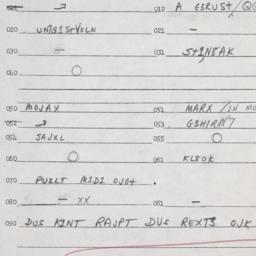 010 A GSRUST/
020 UNTGISTVOLN 021 –
030 – 031 STINSAK
040
050 MOJAX 051 MARX /IN
052 053 GSHIRN7
054 SAJXL 055
060 061 KLSOK
070 PUZLT MIDI OJGT .
080 – XX 081 –
090 DUS KINT RAJPT DUS REXTS OJK